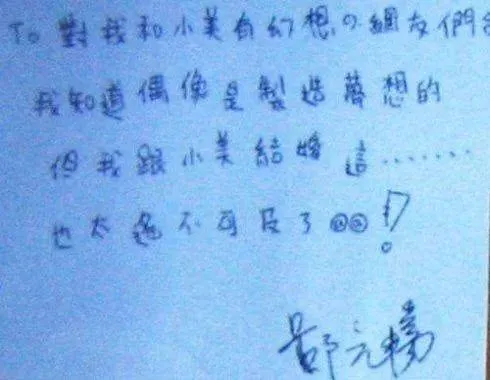 To 對我和小美有幻想の網友們
我知道偶像是製造夢想的
但我跟小美結婚 這.......
也太遙不可及了@@!?
鄭元暢